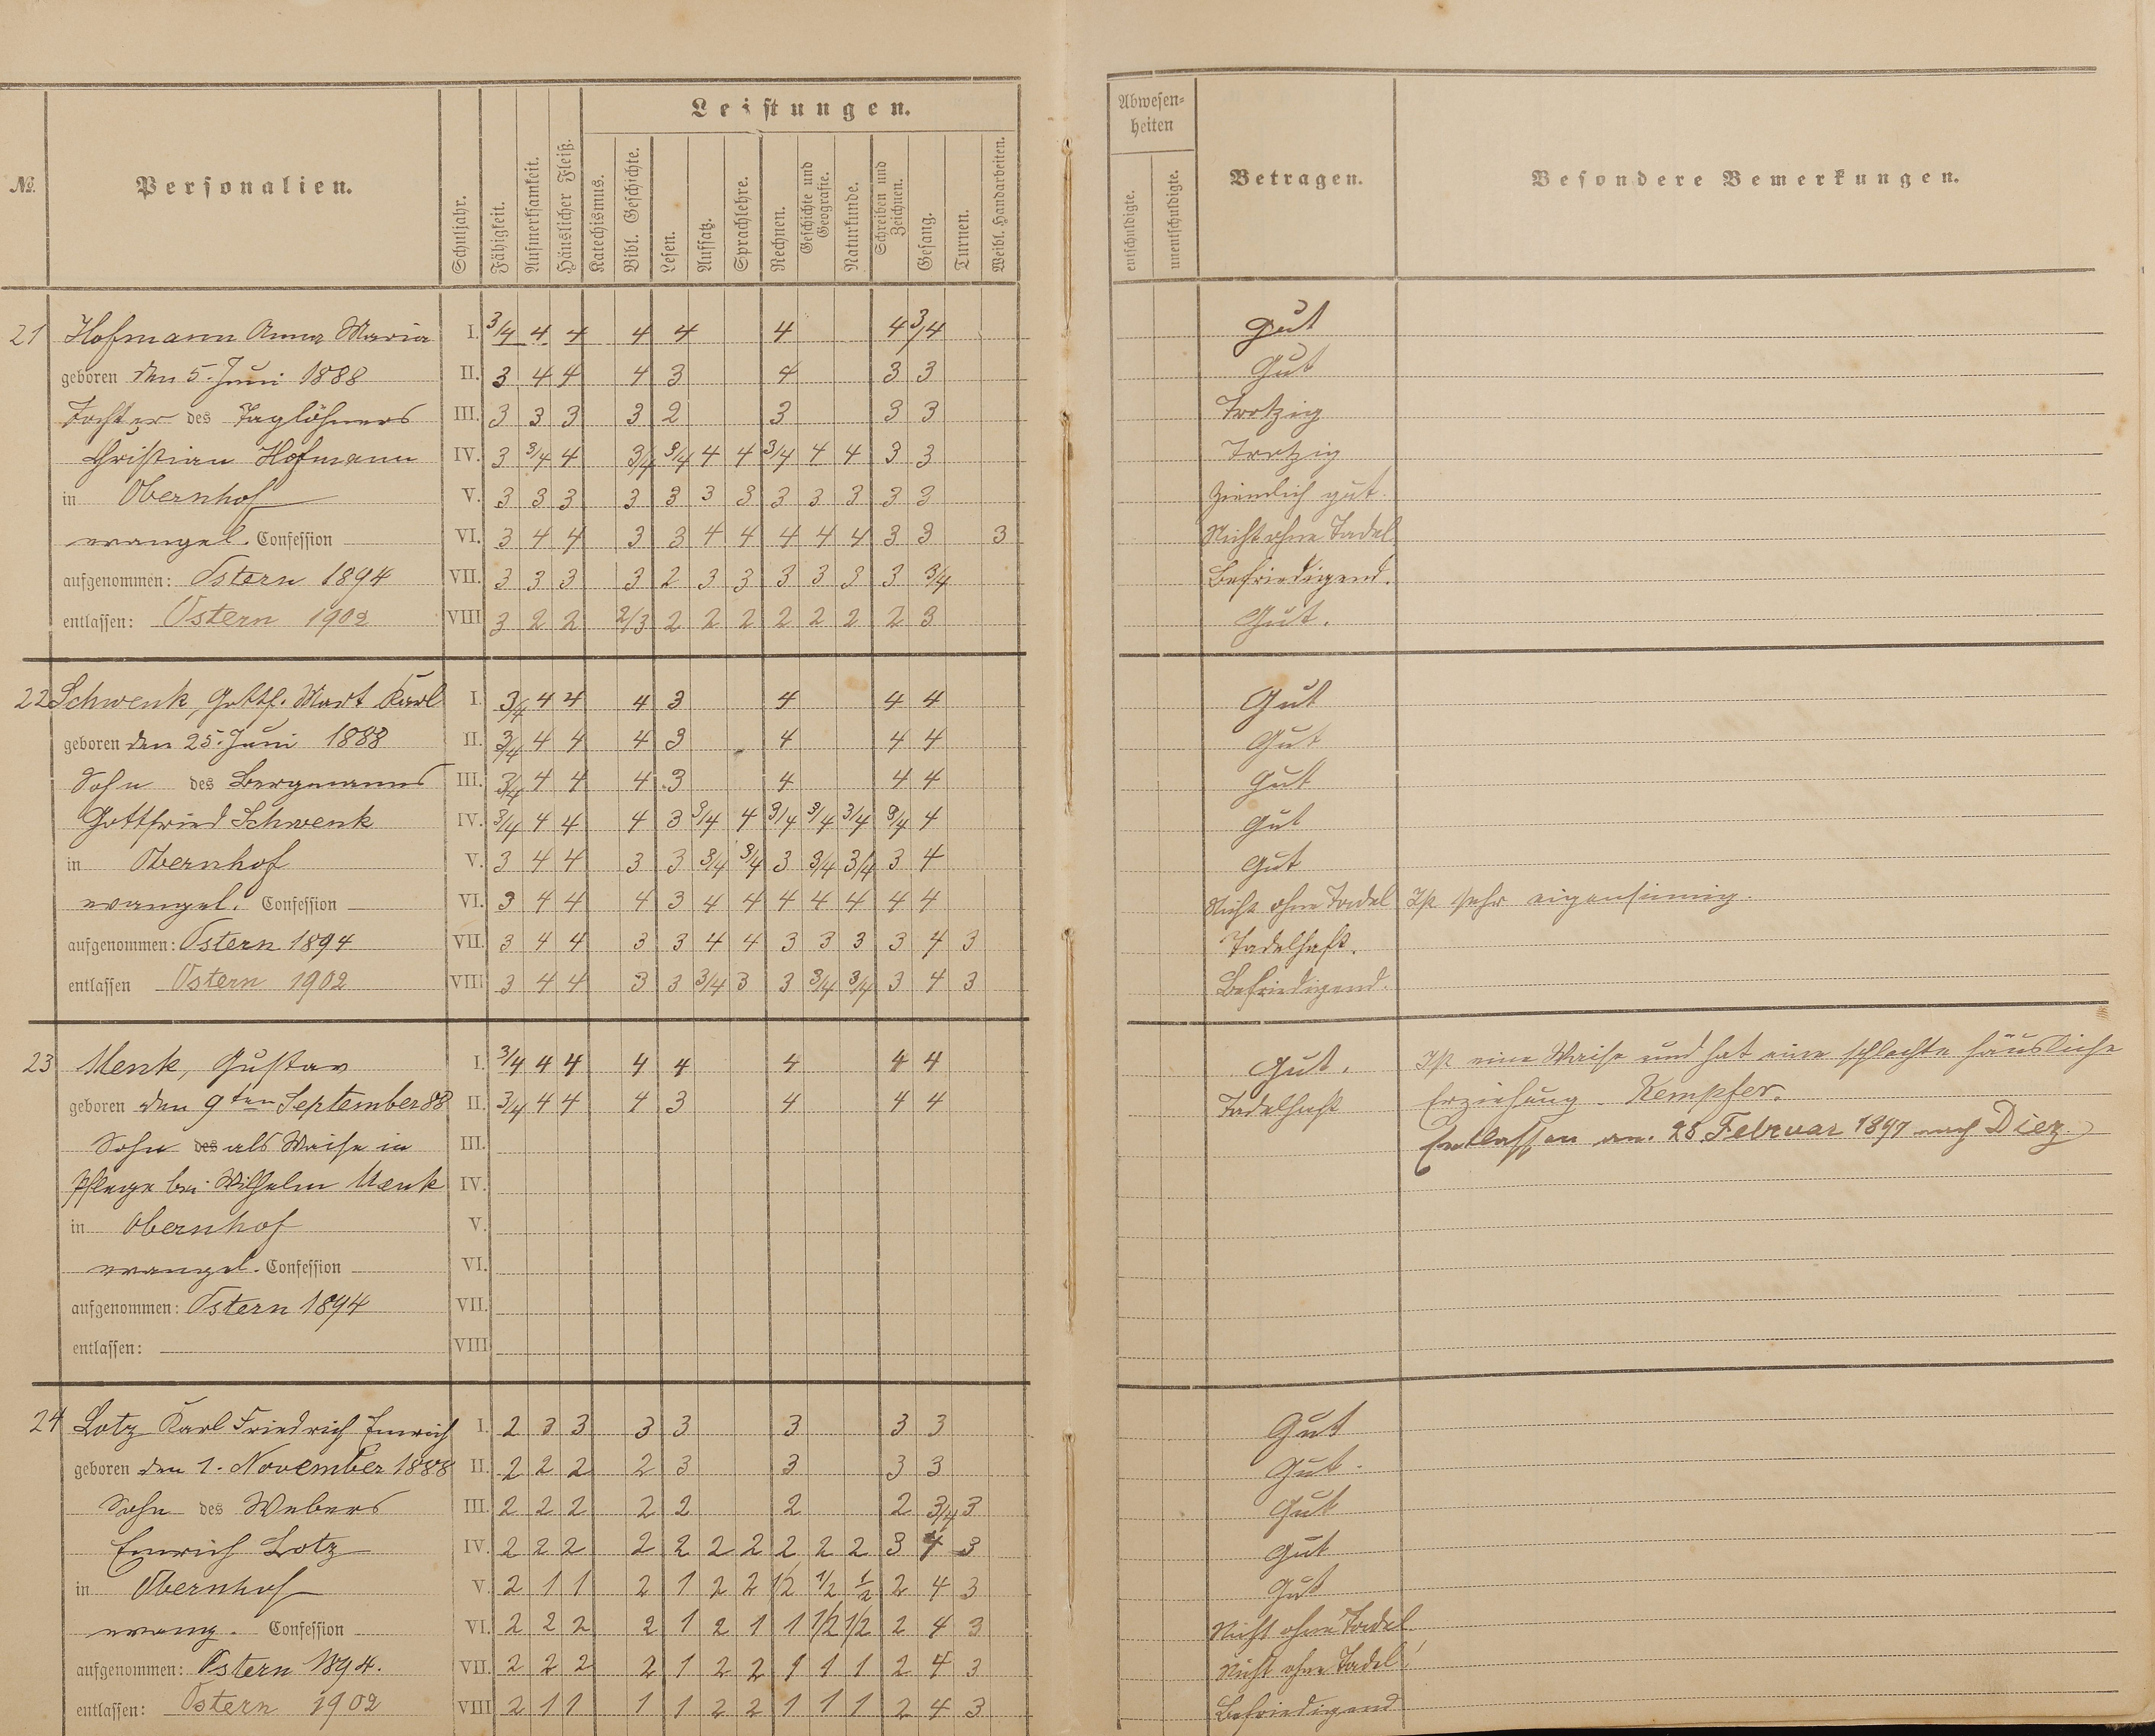 Leistungen.
Abwesen-
heiten
№.
Personalien.
Schuljahr.
Fähigkeit.
Aufmerksamkeit.
Häuslicher Fleiß.
Katechismus.
Bibl. Geschichte.
Lesen.
Aufsatz.
Sprachlehre.
Rechnen.
Geschichte und
Geografie.
Naturkunde.
Schreiben und
Zeichnen.
Gesang.
Turnen.
Weibl. Handarbeiten.
entschuldigte.
unentschuldigte.
Betragen.
Besondere Bemerkungen.
21 Hofmann Anna Maria I. 3/4 4 4 4 4 4 4 3/4 Gut
geboren den 5. Juni 1888 II. 3 4 4 4 3 4 3 3 Gut
Tochter des Taglöhners III. 3 3 3 3 2 3 3 3 Trotzig
Christian Hofmann IV. 3 3/4 4 3/4 3/4 4 4 3/4 4 4 3 3 Trotzig
in Obernhof V. 3 3 3 3 3 3 3 3 3 3 3 3 Ziemlich gut.
evangel. Confession VI. 3 4 4 3 3 4 4 4 4 4 3 3 3 Nicht ohne Tadel
aufgenommen: Ostern 1894 VII. 3 3 3 3 2 3 3 3 3 3 3 3/4 Befriedigend.
entlassen: Ostern 1902 VIII 3 2 2 2/3 2 2 2 2 2 2 2 3 Gut.
22 Schwenk, Gottf. Mart Karl I. 3/4 4 4 4 3 4 4 4 Gut
geboren den 25. Juni 1888 II. 3/4 4 4 4 3 4 4 4 Gut
Sohn des Bergmanns III. 3/4 4 4 4 3 4 4 4 Gut
Gottfried Schwenk IV. 3/4 4 4 4 3 3/4 4 3/4 3/4 3/4 3/4 4 Gut
in Obernhof V. 3 4 4 3 3 3/4 3/4 3 3/4 3/4 3 4 Gut
evangel. Confession VI. 3 4 4 4 3 4 4 4 4 4 4 4 Nicht ohne Tadel Ist sehr eigensinnig.
aufgenommen: Ostern 1894 VII. 3 4 4 3 3 4 4 3 3 3 3 4 3 Tadelhaft.
entlassen Ostern 1902 VIII 3 4 4 3 3 3/4 3 3 3/4 3/4 3 4 3 Befriedigend.
23 Menk, Gustav I. 3/4 4 4 4 4 4 4 4 Gut. Ist eine Waise und hat eine schlechte häusliche
geboren den 9ten September 88 II. 3/4 4 4 4 3 4 4 4 Tadelhaft Erziehung. Kempfer.
Sohn des als Waise in III. Entlassen am 28. Februar 1897 nach Diez.
Pflege bei Wilhelm Menk IV.
in Obernhof V.
evangel. Confession VI.
aufgenommen: Ostern 1894 VII.
entlassen: VIII
24 Lotz Karl Friedrich Emrich I. 2 3 3 3 3 3 3 3 Gut
geboren den 1. November 1888 II. 2 2 2 2 3 3 3 3 Gut.
Sohn des Webers III. 2 2 2 2 2 2 2 3/4 3 Gut
Emrich Lotz IV. 2 2 2 2 2 2 2 2 2 2 3 4 3 Gut
in Obernhof V. 2 1 1 2 1 2 2 1/2 1/2 1/2 2 4 3 Gut
evang. Confession VI. 2 2 2 2 1 2 1 1 1/2 1/2 2 4 3 Nicht ohne Tadel.
aufgenommen: Ostern 1894. VII. 2 2 2 2 1 2 2 1 1 1 2 4 3 Nicht ohne Tadel!
entlassen: Ostern 1902 VIII 2 1 1 1 1 2 2 1 1 1 2 4 3 Befriedigend